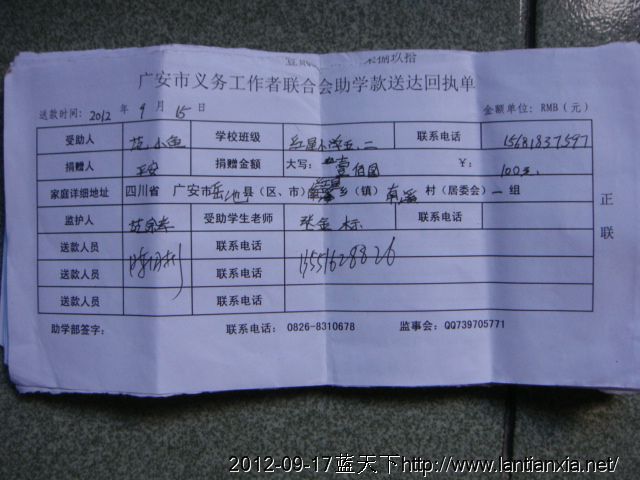 广安市义务工作者联合会助学款送达回执单
送款时间：2012 年 9 月 15 日 金额单位：RMB（元）
受助人 范小鱼 学校班级 红星小学五.二 联系电话 15681837597
捐赠人 捐赠金额 大写：壹佰圆 ￥： 100元
家庭详细地址 四川省 广安市岳池县（区、市） 乡（镇） 村（居委会）一组
监护人 受助学生老师 张金标 联系电话
送款人员 联系电话 13551628826
送款人员 联系电话
送款人员 联系电话
正联
助学部签字： 联系电话：0826-8310678 监事会：QQ739705771
2012-09-17蓝天下http://www.lantianxia.net/